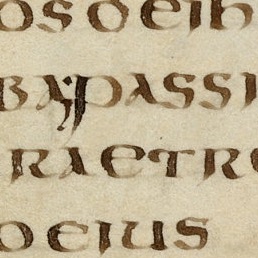 osdeih
ba; passi
raetre
deius